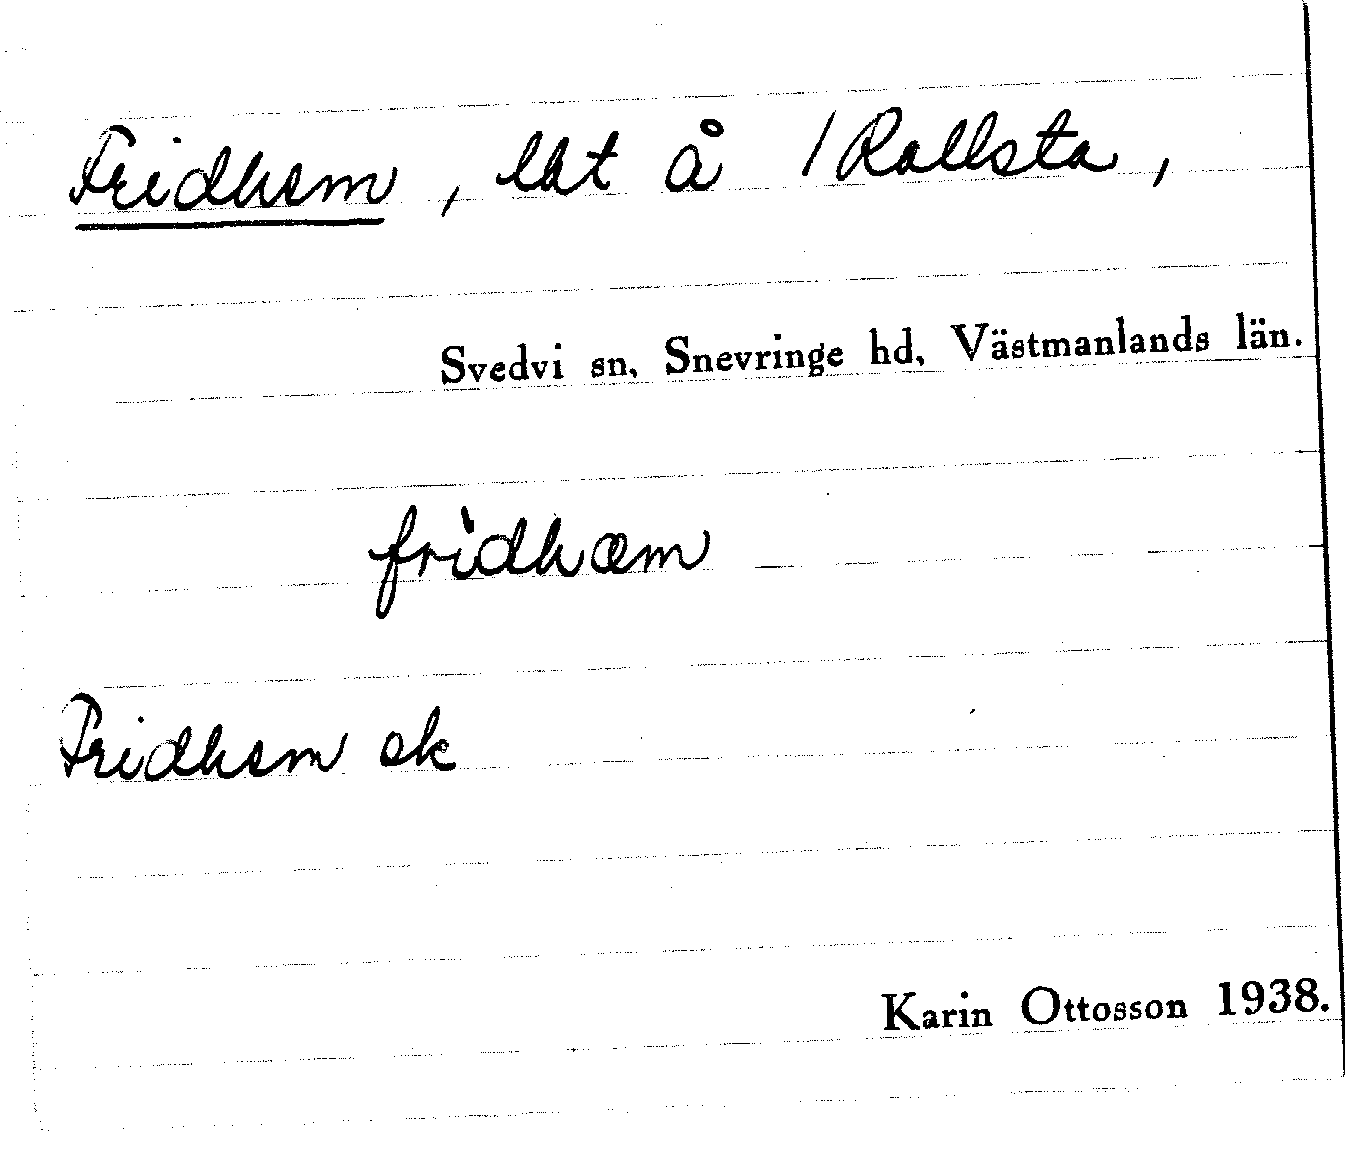 Fridhem, lht å / Rallsta,
Svedvi sn, Snevringe hd, Västmanlands län.
fridhæm
Fridhem ek
Karin Ottosson 1938.